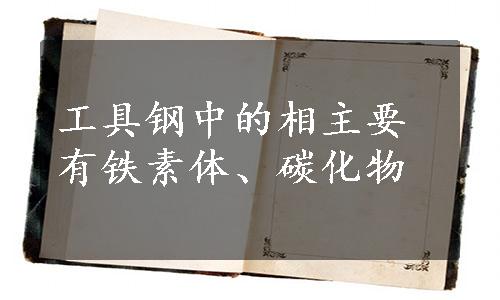 工具钢中的相主要
有铁素体、碳化物